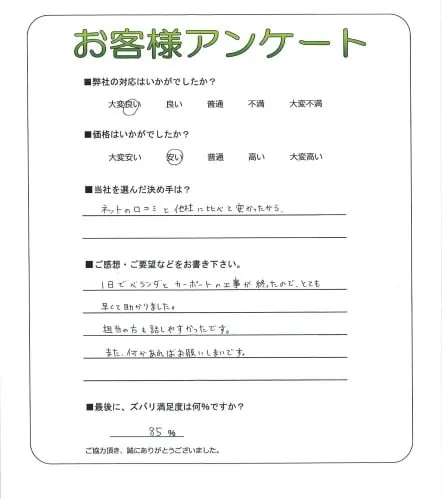 お客様アンケート
■弊社の対応はいかがでしたか？
大変良い 良い 普通 不満 大変不満
■価格はいかがでしたか？
大変安い 安い 普通 高い 大変高い
■当社を選んだ決め手は？
ネットの口コミと他社に比べと安かったから。
■ご感想・ご要望などをお書き下さい。
1日でベランダとカーポートの工事が終ったので、とても
早くて助かりました。
担当の方も話しやすかったです。
また、何かあればお願いしまいです。
■最後に、ズバリ満足度は何%ですか？
85 %
ご協力頂き、誠にありがとうございました。